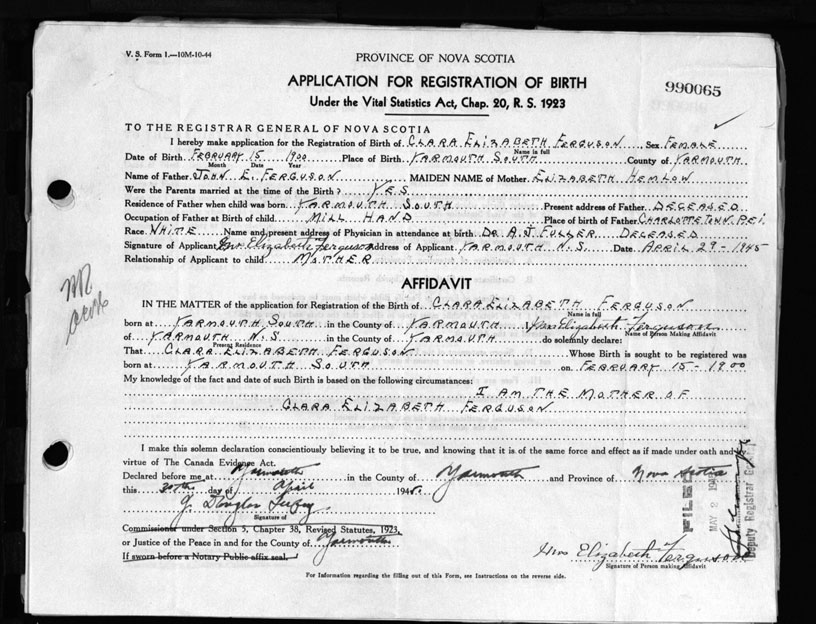 V. S. Form 1.—10M-10-44
PROVINCE OF NOVA SCOTIA
APPLICATION FOR REGISTRATION OF BIRTH
990065
Under the Vital Statistics Act, Chap. 20, R. S. 1923
TO THE REGISTRAR GENERAL OF NOVA SCOTIA
I hereby make application for the Registration of Birth of CLARA ELIZABETH FERGUSON Sex FEMALE
Name in full
Date of Birth FEBRUARY 15 1900 Place of Birth YARMOUTH SOUTH County of YARMOUTH
Month Date Year
Name of Father JOHN E. FERGUSON MAIDEN NAME of Mother ELIZABETH HEMLOW
Were the Parents married at the time of the Birth? YES
Residence of Father when child was born YARMOUTH SOUTH Present address of Father DECEASED
Occupation of Father at Birth of child MILL HAND Place of birth of Father CHARLOTTETOWN P.E.I.
Race WHITE Name and present address of Physician in attendance at birth DR A. J FULLER DECEASED
Signature of Applicant Mrs Elizabeth Ferguson Address of Applicant YARMOUTH N.S Date APRIL 29-1945
Relationship of Applicant to child MOTHER
AFFIDAVIT
IN THE MATTER of the application for Registration of the Birth of CLARA ELIZABETH FERGUSON
Name in full
born at YARMOUTH SOUTH in the County of YARMOUTH Mrs Elizabeth Ferguson
Name of Person Making Affidavit
of YARMOUTH N.S in the County of YARMOUTH do solemnly declare:
Present Residence
That CLARA ELIZABETH FERGUSON Whose Birth is sought to be registered was
born at YARMOUTH SOUTH on FEBRUARY 15-1900
My knowledge of the fact and date of such Birth is based on the following circumstances:
I AM THE MOTHER OF
CLARA ELIZABETH FERGUSON
I make this solemn declaration conscientiously believing it to be true, and knowing that it is of the same force and effect as if made under oath and
virtue of The Canada Evidence Act.
Declared before me at Yarmouth in the County of Yarmouth and Province of Nova Scotia
this 30th day of April 1945.
J. Douglas
Signature of
Commissioner under Section 5, Chapter 38, Revised Statutes, 1923,
or Justice of the Peace in and for the County of Yarmouth
If sworn before a Notary Public affix seal.
FILED
MAY 2 194
Deputy Registrar
Mrs Elizabeth Ferguson
Signature of Person making Affidavit
For Information regarding the filling out of this Form, see Instructions on the reverse side.